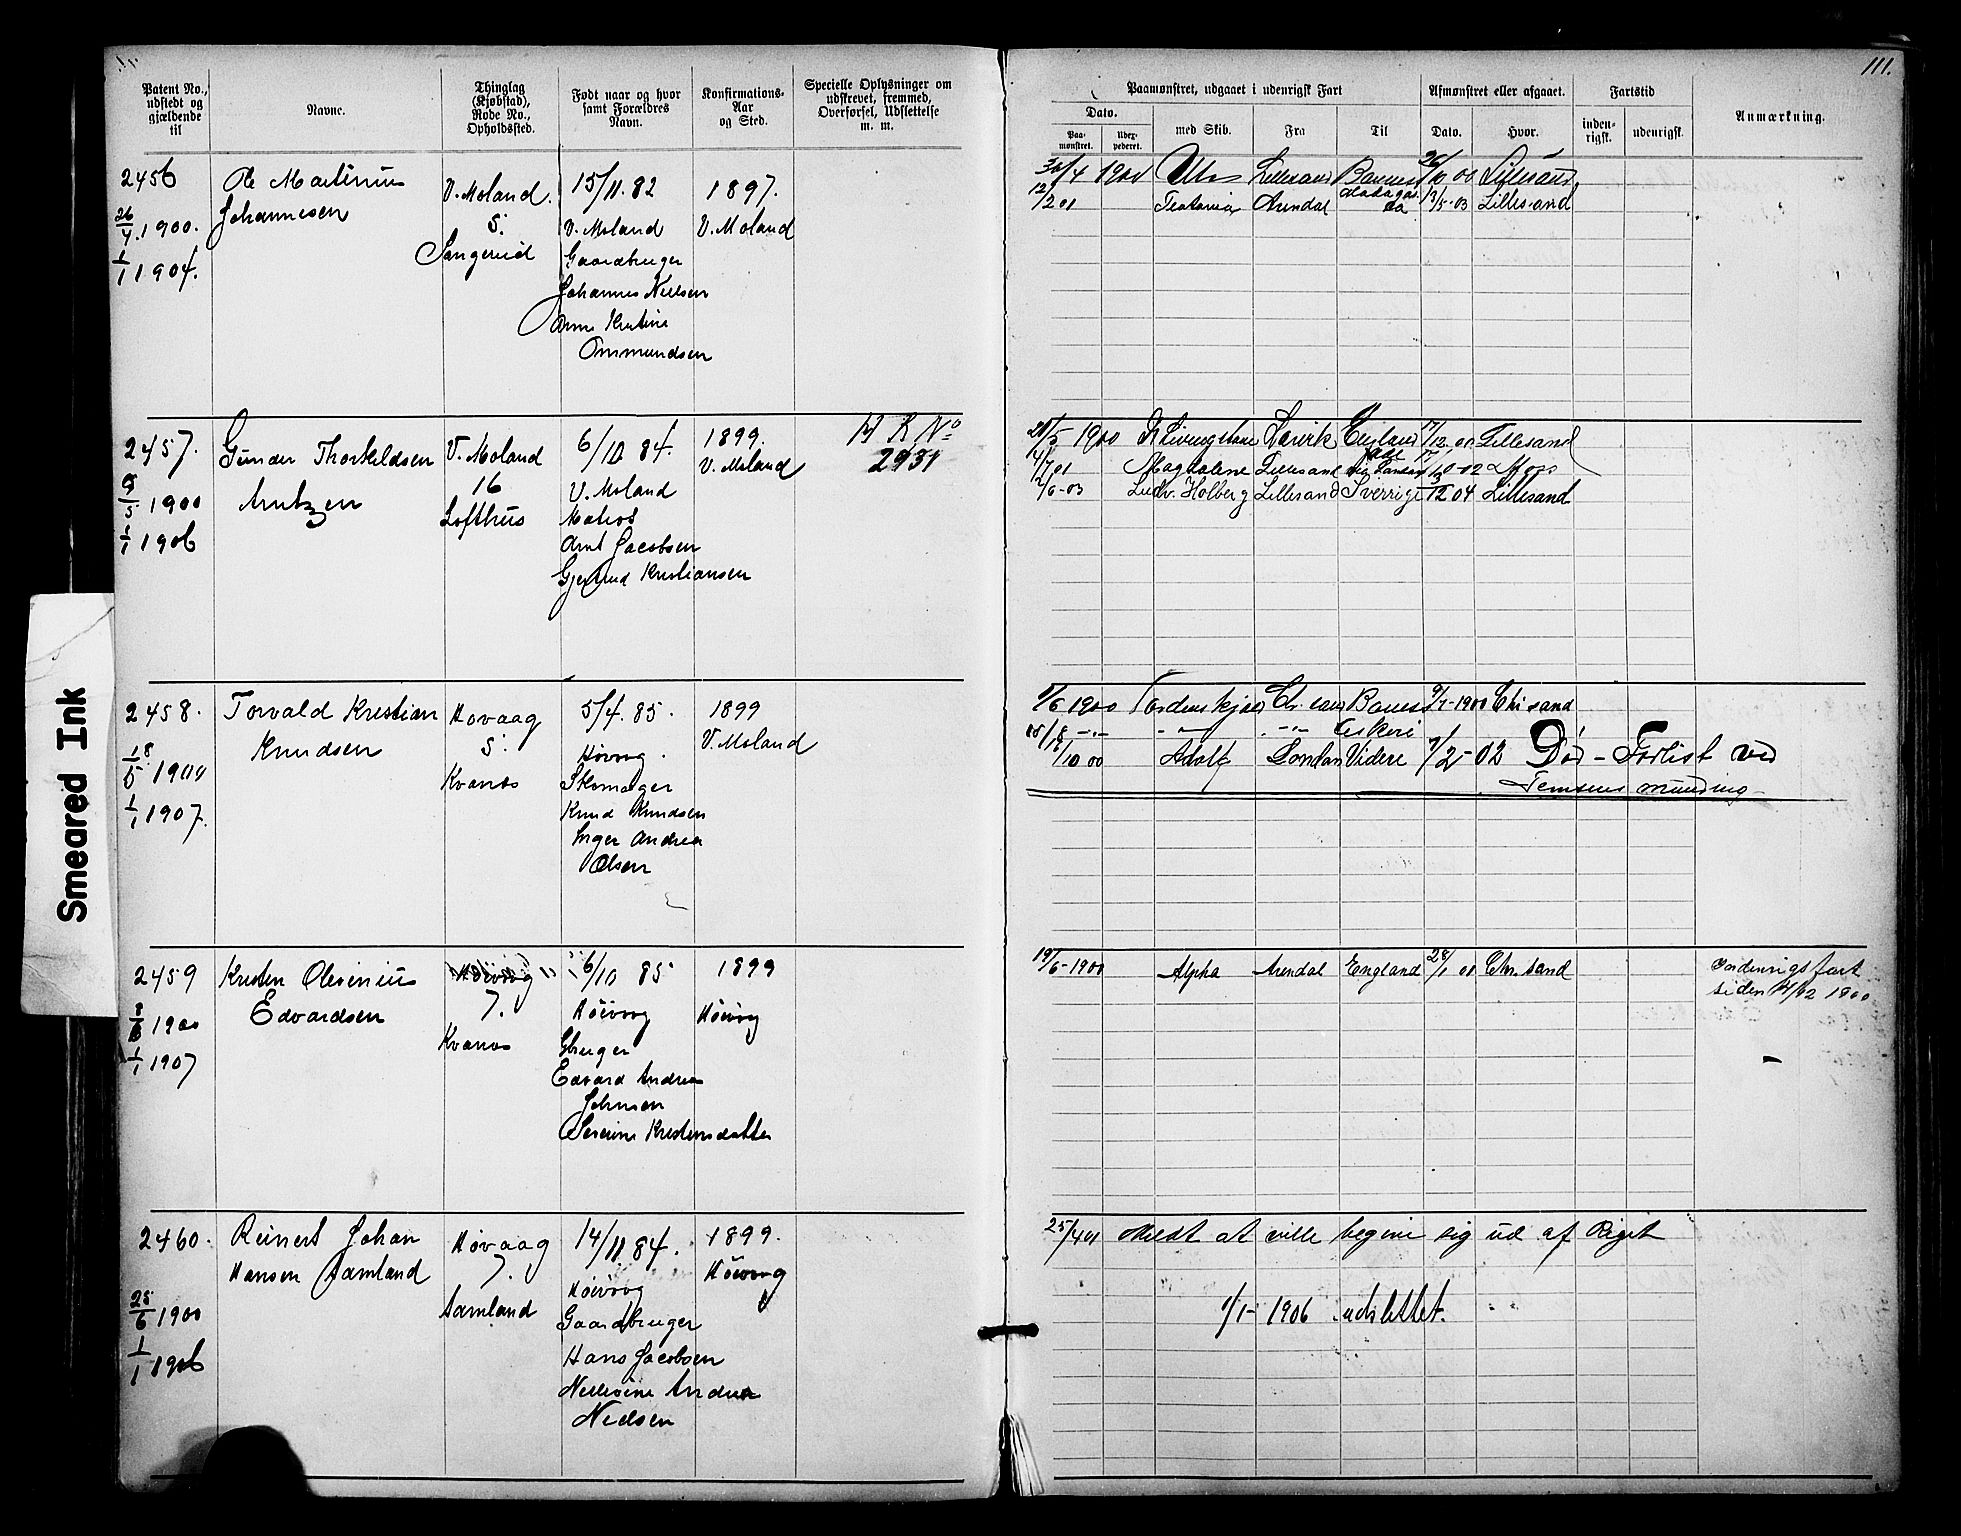 111.
Patent No., udstedt og gjældende til
Navne.
Thinglag (Kjøbstad), Rode No., Opholdssted.
Født naar og hvor samt Forældres Navn.
Konfirmations-Aar og Sted.
Specielle Oplysninger om udskrevet, fremmed, Overførsel, Udslettelse m. m.
Paamønstret, udgaaet i udenrigsk Fart
Dato.
Paamønstret.
Udexpederet.
med Skib.
Fra
Til
Afmønstret eller afgaaet.
Dato.
Hvor.
Fartstid
indenrigsk.
udenrigsk.
Anmærkning.
2456
26/4 1900.
1/1 1904.
Ole Martinius
Johannesen
V. Moland.
5.
Sangereid
15/11. 82
V. Moland
Gaardbruger
Johannes Nielsen
Anne Kristine
Ommundsen
1897.
V. Moland
30/4 1900 Lillesand 26/10 00 Lillesand
12/2 01 Arendal 13/5-03 Lillesand
2457.
9/5 1900
1/1 1906
Gunder Thorkildsen
Arntzen
V. Moland
16
Lofthus
6/10 84.
V. Moland
Matros
Arnt Jacobsen
Gjertrud Kristiansen
1899.
V. Moland
H R No
2931
28/5 1900 Livingstone Larvik England 17/12 00 Lillesand
4/7 01 Magdalene Lillesand 10-02 Moss
2/6-03 Ludv. Holberg Lillesand Sverrige 3/12 04 Lillesand
2458.
18/5 1900
1/1 1907.
Torvald Kristian
Knudsen
Høvaag
5.
Kvanes
5/4. 85.
Høivåg.
Skomager
Knud Knudsen
Inger Andrea
Olsen
1899
V. Moland
1/6 1900 Tordenskjold Chr.sand 9/7-1900 Chr sand
18/8 -"- -"- -"-
17/10 00 Adolf London Videre 7/2-02 Død - Forlist ved
Temsens munding
2459
8/6 1900
1/1 1907
Kristen Olevinius
Edvardsen
Høivåg
7.
Kvanes
6/10 85
Høivåg
Gbruger
Edvard Andreas
Johnsen
Serine Kristensdatter
1899
Høivåg
19/6-1900 Alpha Arendal England 28/1 01 Chr.sand
Indenrigsfart
siden 14/12 1900
2460.
25/6 1900
1/1 1906
Reinert Johan
Hansen Aamland
Høvaag
7.
Aamland
14/11 84.
Høivåg
Gaardbruger
Hans Jacobsen
Andrea
Nielsen
1899.
Høivåg
25/4 01 Meldt at ville begive sig ud af Riget
1/1-1906 udslettet.
Smeared Ink